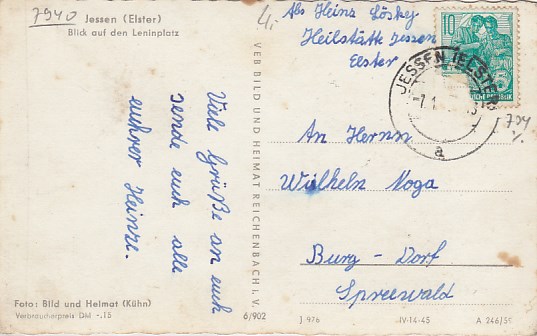 7940
Jessen (Elster)
Blick auf den Leninplatz
4,-
Abs Heinz Lösky
Heilstätte Jessen
Elster
10
JESSEN (ELSTER)
-7.1
a
Viele Grüße an euch
sende euch alle
euhrer Heinze.
VEB BILD UND HEIMAT REICHENBACH i. V.
An Herrn
Wilhelm Noga
Burg - Dorf
Spreewald
Foto: Bild und Heimat (Kühn)
Verbraucherpreis DM -.15
6/902
J 976
IV-14-45
A 246/59